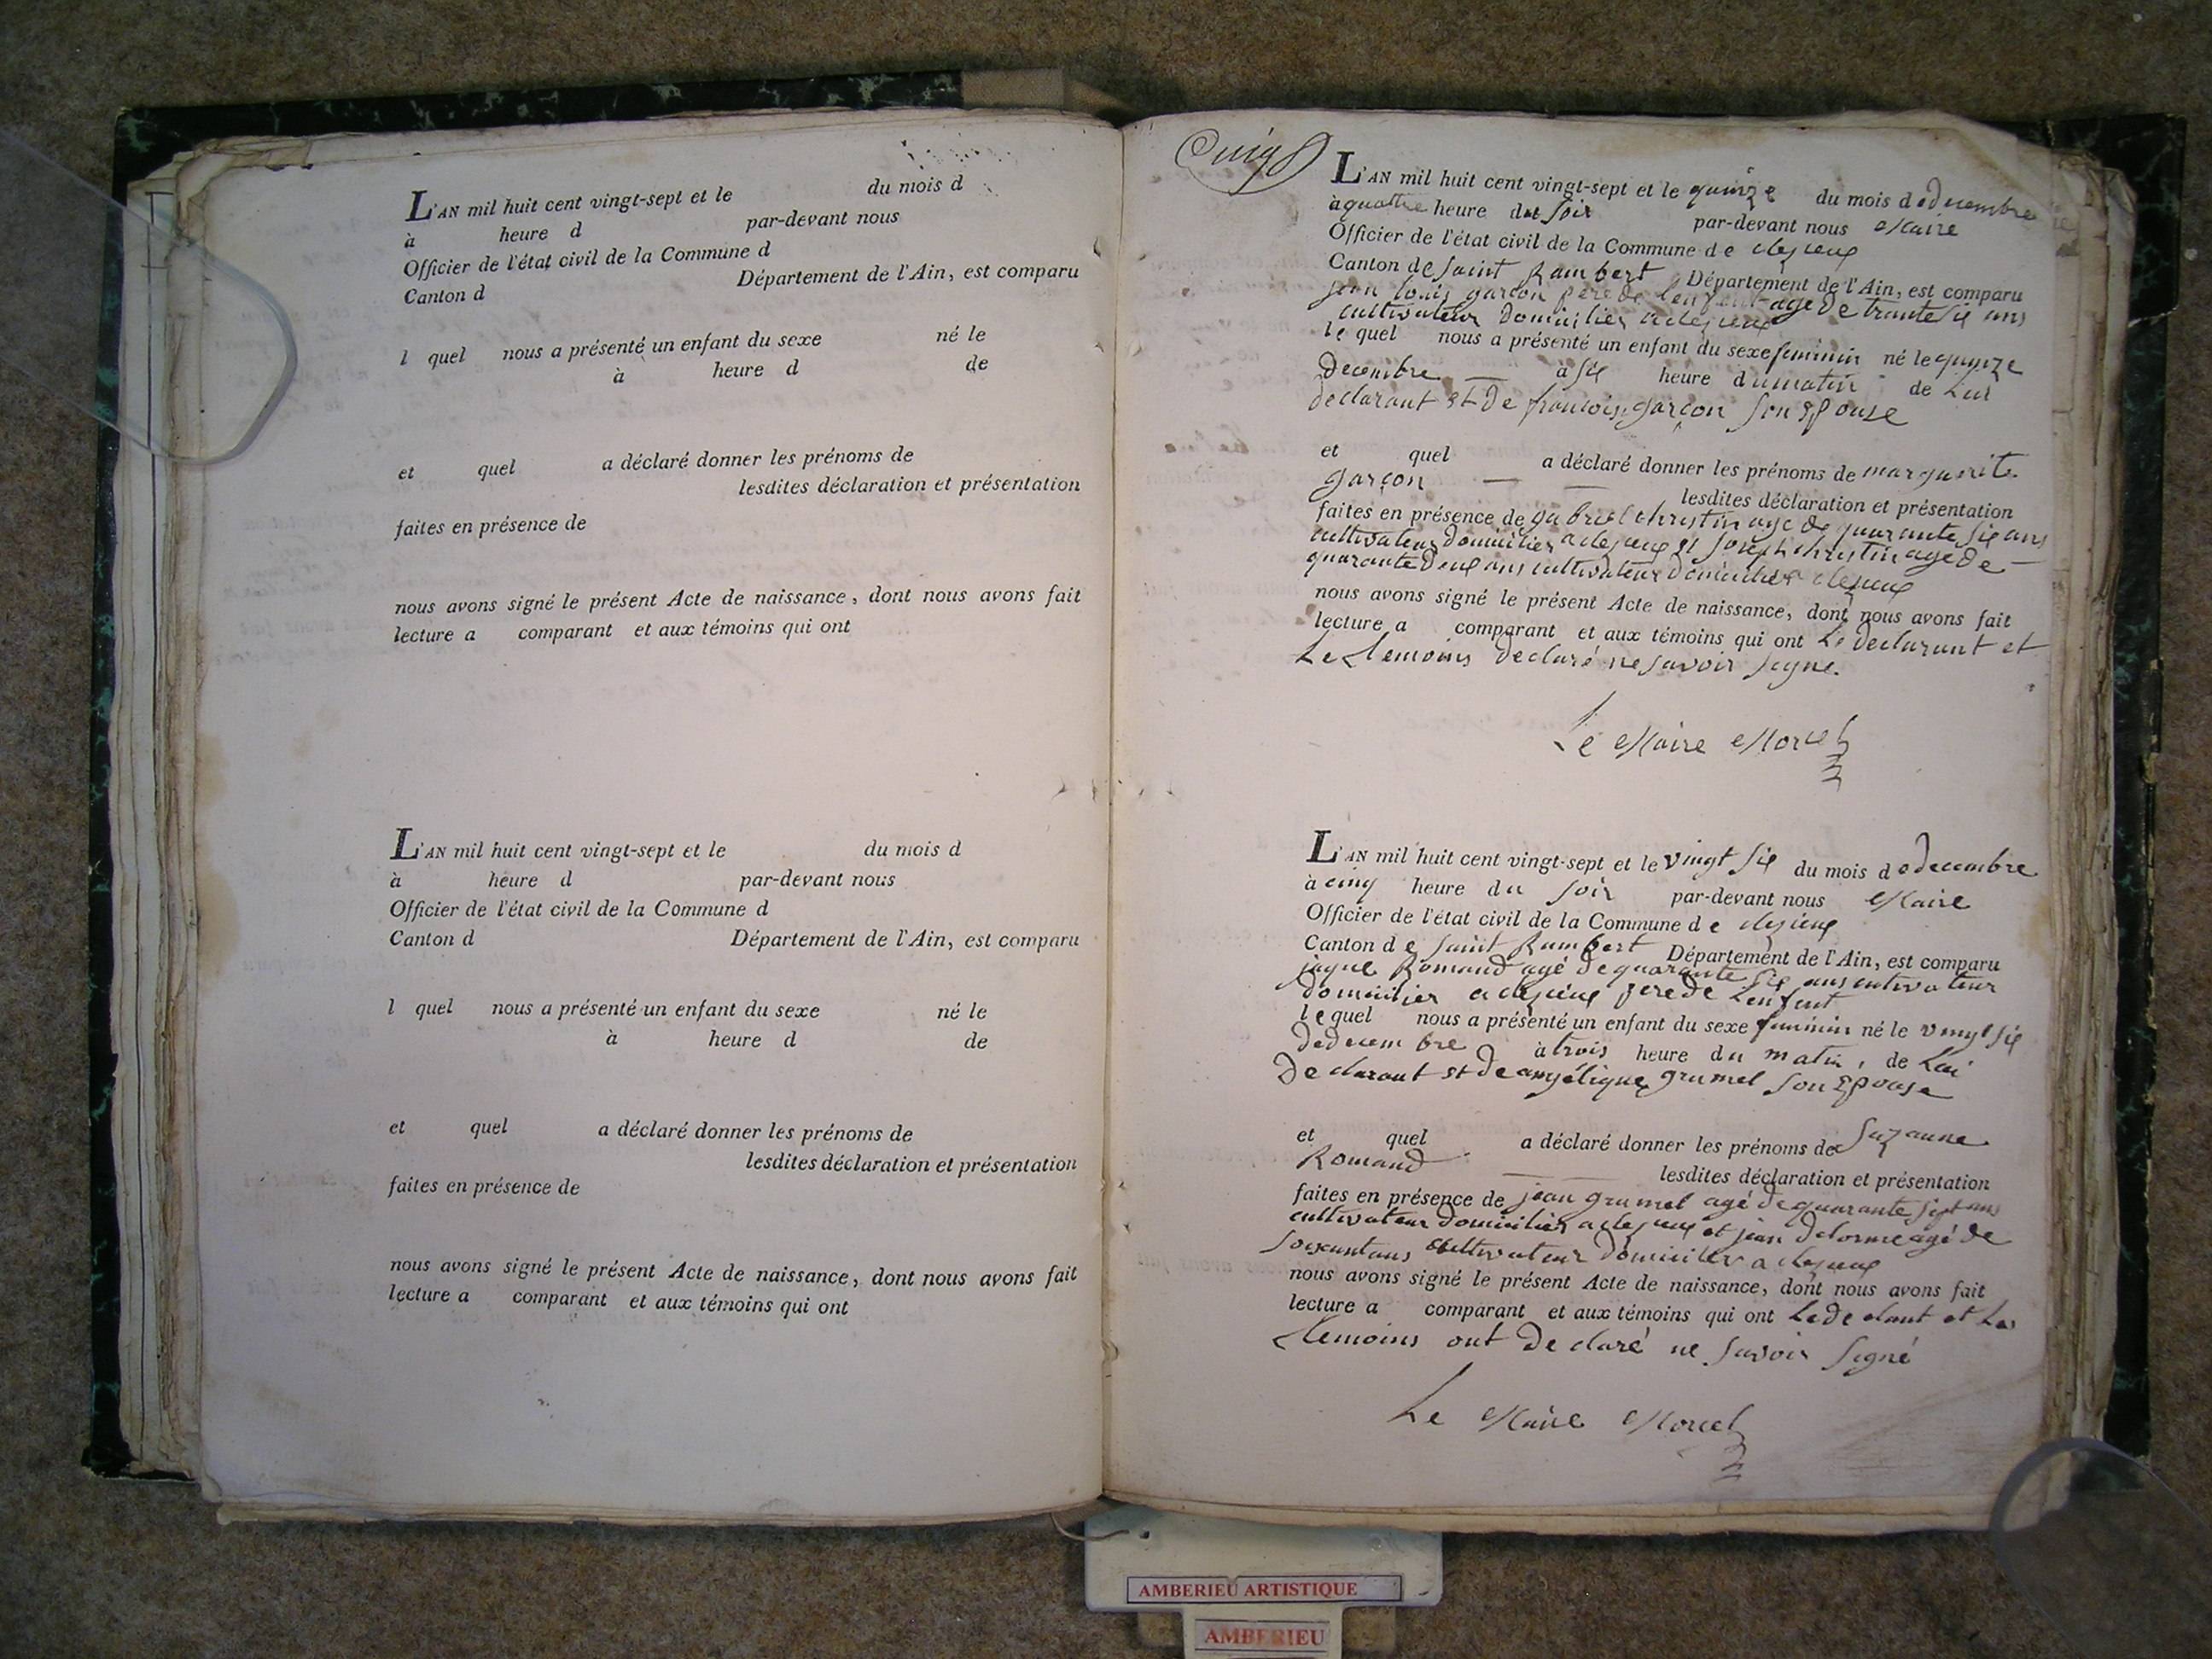 L'AN mil huit cent vingt-sept et le du mois d
à heure d par-devant nous
Officier de l'état civil de la Commune d
Canton d Département de l'Ain, est comparu
l quel nous a présenté un enfant du sexe né le
à heure d de
et quel a déclaré donner les prénoms de
lesdites déclaration et présentation
faites en présence de
nous avons signé le présent Acte de naissance, dont nous avons fait
lecture a comparant et aux témoins qui ont
L'AN mil huit cent vingt-sept et le du mois d
à heure d par-devant nous
Officier de l'état civil de la Commune d
Canton d Département de l'Ain, est comparu
l quel nous a présenté un enfant du sexe né le
à heure d de
et quel a déclaré donner les prénoms de
lesdites déclaration et présentation
faites en présence de
nous avons signé le présent Acte de naissance, dont nous avons fait
lecture a comparant et aux témoins qui ont
L'AN mil huit cent vingt-sept et le quinze du mois de decembre
à quatre heure du soir par-devant nous Maire
Officier de l'état civil de la Commune de
Canton de saint Rambert Département de l'Ain, est comparu
jean louis garcon pere de lenfant age de trante six ans
cultivateur domicilier a
le quel nous a présenté un enfant du sexe feminin né le quinze
decembre à six heure du matin de Lui
declarant et de francoise garcon son Epouse
et quel a déclaré donner les prénoms de marguerite
garçon lesdites déclaration et présentation
faites en présence de gabriel christin age de quarante six ans
cultivateur domicilier a et joseph christin age de
quarante deux ans cultivateur domicilier a
nous avons signé le présent Acte de naissance, dont nous avons fait
lecture a comparant et aux témoins qui ont Le declarant et
Le temoins declaré ne savoir signe.
Le Maire Morcel
L'AN mil huit cent vingt-sept et le vingt six du mois de decembre
à cinq heure du soir par-devant nous Maire
Officier de l'état civil de la Commune de
Canton de saint Rambert Département de l'Ain, est comparu
jaque Romand agé de quarante six ans cutivateur
domicilier a pere de Lenfent
le quel nous a présenté un enfant du sexe feminin né le vingt six
dedecembre à trois heure du matin, de Lui
Declarant et de angélique grumel son Epouse
et quel a déclaré donner les prénoms de Suzanne
Romand lesdites déclaration et présentation
faites en présence de jean grumel agé de quarante sept ans
cultivateur domicilier a et jean delorme agé de
soixantans cultivateur domicilier a
nous avons signé le présent Acte de naissance, dont nous avons fait
lecture a comparant et aux témoins qui ont Le de clant et Les
temoins ont De claré ne savoir signé
Le Maire Morcel
AMBERIEU ARTISTIQUE
AMBERIEU